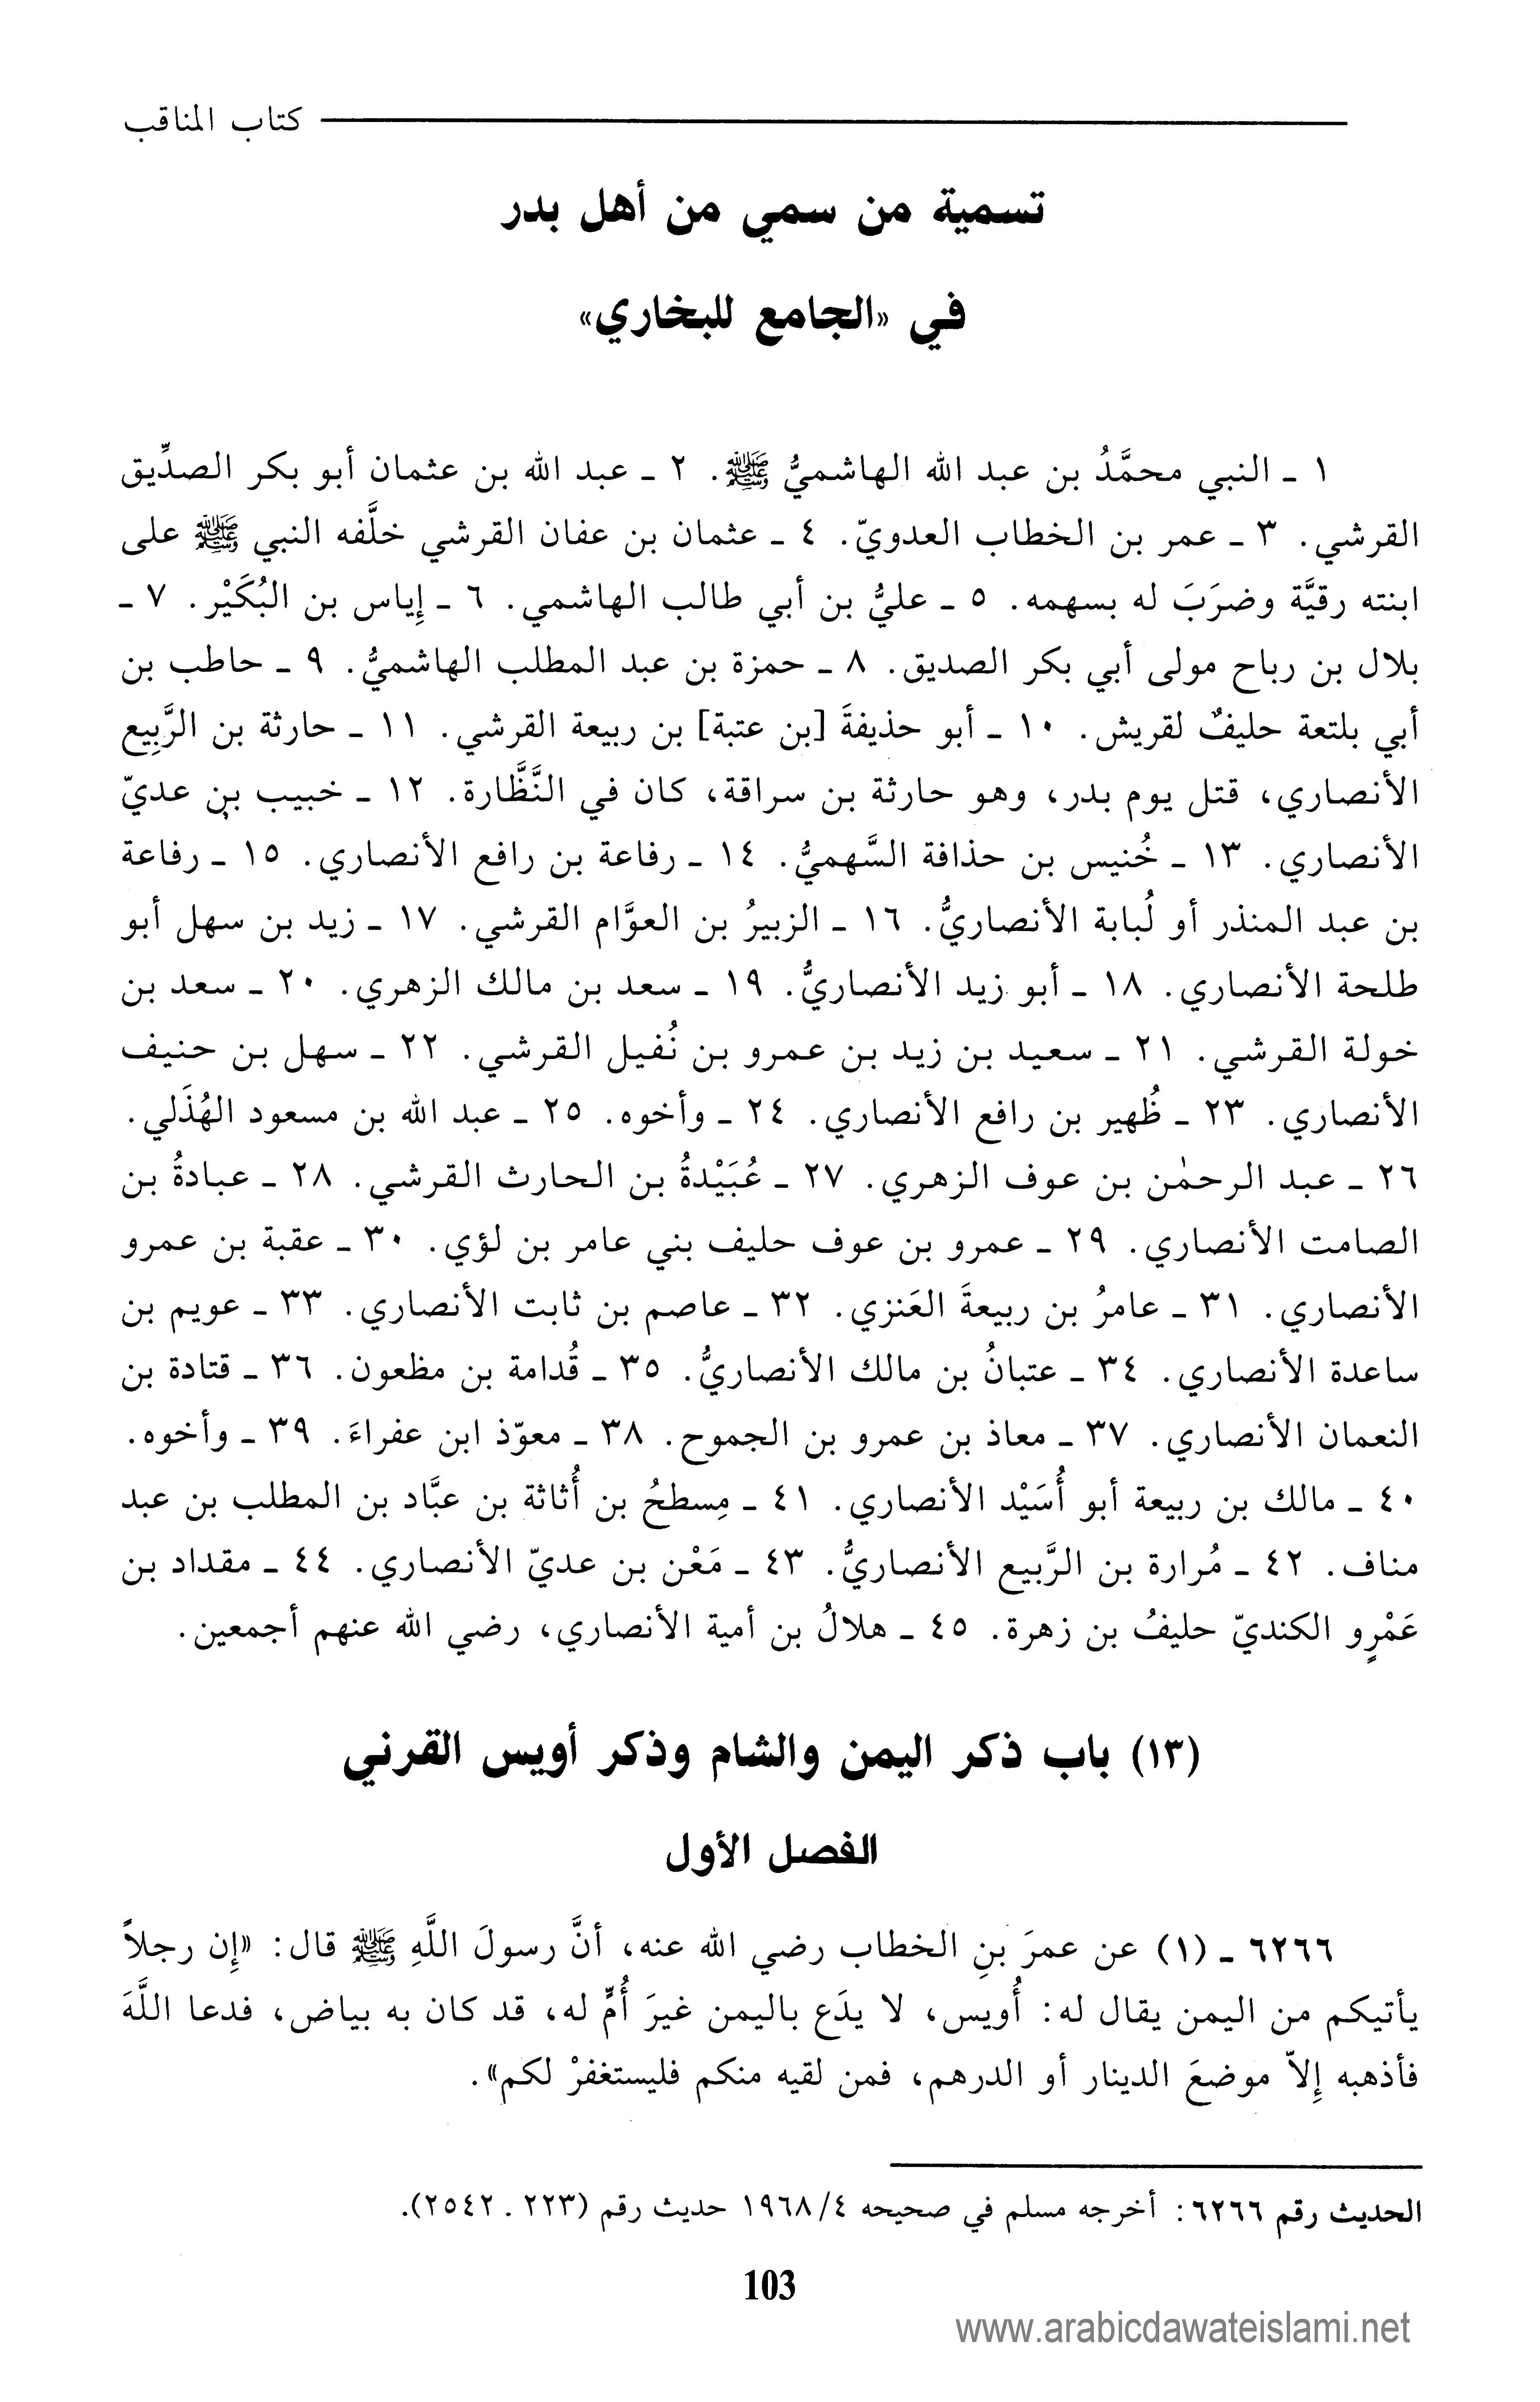 كتاب المناقب
تسمية من سمي من أهل بدر
في «الجامع للبخاري»
١ ـ النبي محمَّدُ بن عبد الله الهاشميُّ ﷺ. ٢ ـ عبد الله بن عثمان أبو بكر الصدِّيق
القرشي. ٣ ـ عمر بن الخطاب العدويّ. ٤ ـ عثمان بن عفان القرشي خلَّفه النبي ﷺ على
ابنته رقيَّة وضرَبَ له بسهمه. ٥ ـ عليُّ بن أبي طالب الهاشمي. ٦ ـ إِياس بن البُكَيْر. ٧ ـ
بلال بن رباح مولى أبي بكر الصديق. ٨ ـ حمزة بن عبد المطلب الهاشميُّ. ٩ ـ حاطب بن
أبي بلتعة حليفٌ لقريش. ١٠ ـ أبو حذيفةَ [بن عتبة] بن ربيعة القرشي. ١١ ـ حارثة بن الرَّبِيع
الأنصاري، قتل يوم بدر، وهو حارثة بن سراقة، كان في النَّظَّارة. ١٢ ـ خبيب بن عديّ
الأنصاري. ١٣ ـ خُنيس بن حذافة السَّهميُّ. ١٤ ـ رفاعة بن رافع الأنصاري. ١٥ ـ رفاعة
بن عبد المنذر أو لُبابة الأنصاريُّ. ١٦ ـ الزبيرُ بن العوَّام القرشي. ١٧ ـ زيد بن سهل أبو
طلحة الأنصاري. ١٨ ـ أبو زيد الأنصاريُّ. ١٩ ـ سعد بن مالك الزهري. ٢٠ ـ سعد بن
خولة القرشي. ٢١ ـ سعيد بن زيد بن عمرو بن نُفيل القرشي. ٢٢ ـ سهل بن حنيف
الأنصاري. ٢٣ ـ ظُهير بن رافع الأنصاري. ٢٤ ـ وأخوه. ٢٥ ـ عبد الله بن مسعود الهُذَلي.
٢٦ ـ عبد الرحمٰن بن عوف الزهري. ٢٧ ـ عُبَيْدةُ بن الحارث القرشي. ٢٨ ـ عبادةُ بن
الصامت الأنصاري. ٢٩ ـ عمرو بن عوف حليف بني عامر بن لؤي. ٣٠ ـ عقبة بن عمرو
الأنصاري. ٣١ ـ عامرُ بن ربيعةَ العَنزي. ٣٢ ـ عاصم بن ثابت الأنصاري. ٣٣ ـ عويم بن
ساعدة الأنصاري. ٣٤ ـ عتبانُ بن مالك الأنصاريُّ. ٣٥ ـ قُدامة بن مظعون. ٣٦ ـ قتادة بن
النعمان الأنصاري. ٣٧ ـ معاذ بن عمرو بن الجموح. ٣٨ ـ معوّذ ابن عفراءَ. ٣٩ ـ وأخوه.
٤٠ ـ مالك بن ربيعة أبو أُسَيْد الأنصاري. ٤١ ـ مِسطحُ بن أُثاثة بن عبَّاد بن المطلب بن عبد
مناف. ٤٢ ـ مُرارة بن الرَّبيع الأنصاريُّ. ٤٣ ـ مَعْن بن عديّ الأنصاري. ٤٤ ـ مقداد بن
عَمْرٍو الكنديّ حليفُ بن زهرة. ٤٥ ـ هلالُ بن أمية الأنصاري، رضي الله عنهم أجمعين.
(١٣) باب ذكر اليمن والشام وذكر أويس القرني
الفصل الأول
٦٢٦٦ ـ (١) عن عمرَ بنِ الخطاب رضي الله عنه، أنَّ رسولَ اللَّهِ ﷺ قال: «إِن رجلاً
يأتيكم من اليمن يقال له: أُويس، لا يدَع باليمن غيرَ أُمٍّ له، قد كان به بياض، فدعا اللَّهَ
فأذهبه إِلاّ موضعَ الدينار أو الدرهم، فمن لقيه منكم فليستغفرْ لكم».
الحديث رقم ٦٢٦٦: أخرجه مسلم في صحيحه ١٩٦٨/٤ حديث رقم (٢٢٣ . ٢٥٤٢).
103
www.arabicdawateislami.net